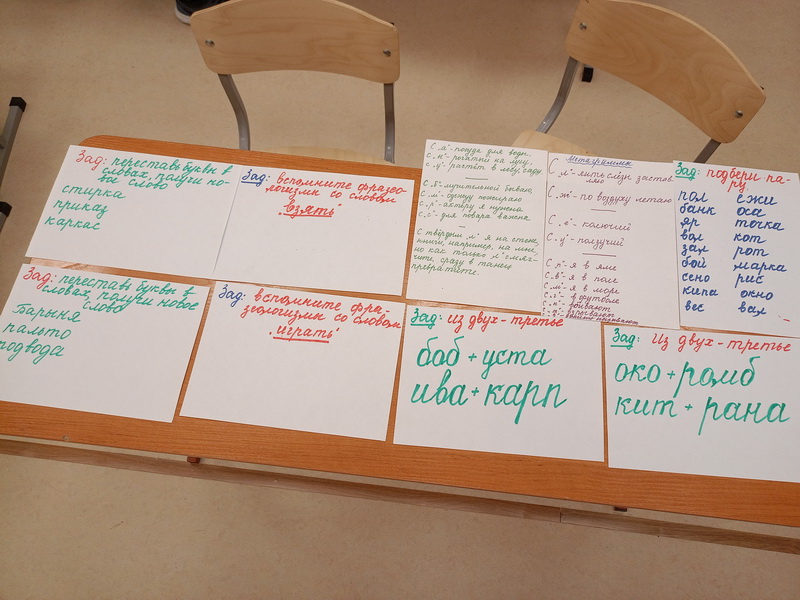 Зад: переставь буквы в
словах, получи но-
вые слово
стирка
приказ
каркас
Зад: вспомните фразео-
логизмы со словом
„взять
С „я"- посуда для воды.
С „к"- рогатки на лугу.
С „у"- растёт в лесу, саду
С „р"- актёру я нужена
С „с"- для повара важна
С твёрдым „л" я на стене,
книги, например, на мне,
но как только „л" смяг-
чите, сразу в танец
превратите.
Метаграммы
С „ж"- по воздуху летаю
С „е"- колючий
С „у"- ползучий
С „п"- я в яме
С „в"- я в поле
С „м"- я в море
С „г"- в футболе
Зад: подбери па-
ру.
пол ежи
банк оса
яр точка
вол кот
зал рот
бой марка
сено рис
кипа окно
вес вал
Зад: переставь буквы в
словах, получи новое
слово
Барыня
пальто
подвода
Зад: вспомните фра-
зеологизмы со словом
„играть"
Зад: из двух - третье
боб + уста
ива + карп
Зад: Из двух - третье
око + ромб
кит + рана